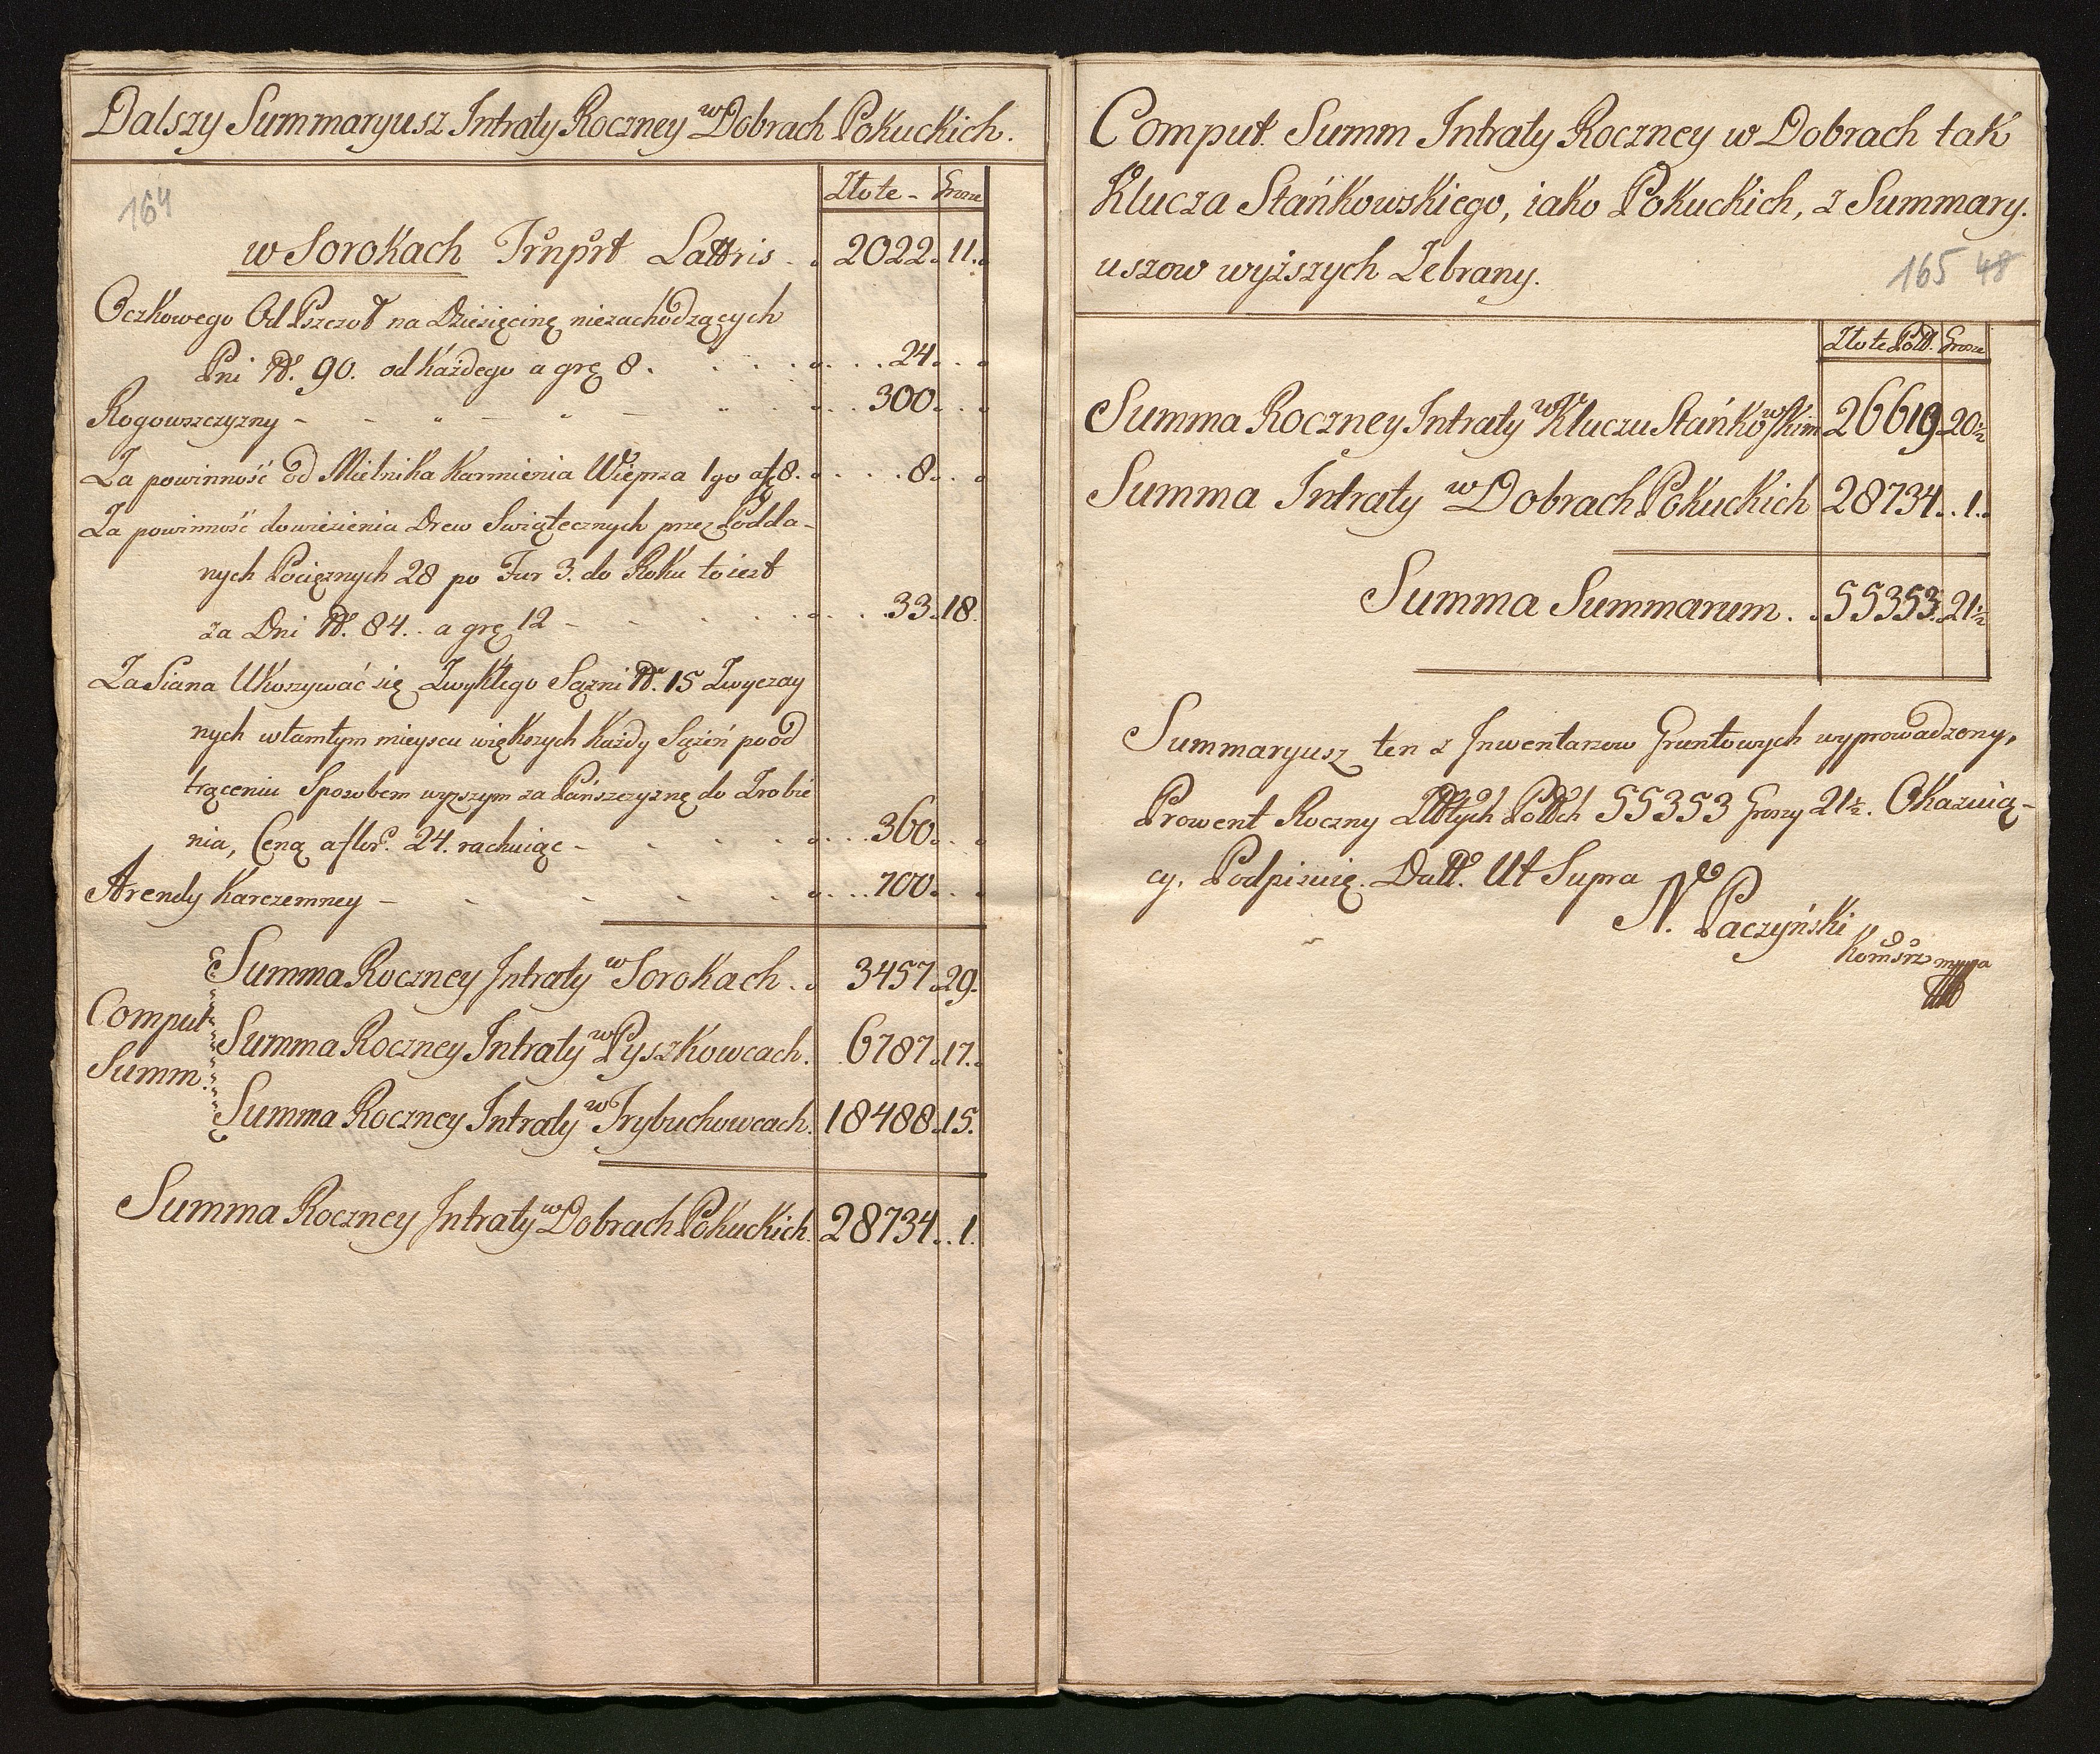 Dalszy Summaryusz Intraty Roczney w Dobrach Pokuckich.
164
Złote - Grosze
w Sorokach Trnprt Lattris . 2022. 11.
Oczkowego Od Pszczoł na Dziesięcinę niezachodzących
Pni N. 90. od Każdego a grę 8. . . . 24. . .
Rogowszczyzny - - - . . 300. . .
Za powinność od Mielnika Karmienia Wieprza 1go a f 8. . . . 8. . .
Za powinność dowiezienia Drew Swiątecznych przez Podda-
nych Pociężnych 28 po Fur 3. do Roku to iest
za Dni N. 84. . a grę 12 - . . . 33. 18.
Za Siana Ukoszywać się Zwykłego Sązni N. 15 Zwyczay
nych w tamtym mieyscu większych Każdy Sążeń po od
trąceniu Sposobem wyższym za Pańszczyznę do Zrobie
nia, Ceną a flor. 24. rachuiąc - . . . 360. . .
Arendy Karczemney - . . . 700. . .
Summa Roczney Intraty w Sorokach. . 3457. 29.
Comput Summa Roczney Intraty w Pyszkowcach. 6787. 17.
Summ. Summa Roczney Intraty w Trybuchowcach. 18488. 15.
Summa Roczney Intraty w Dobrach Pokuckich. 28734. . 1.
Comput. Summ Intraty Roczney w Dobrach tak
Klucza Stańkowskiego, iako Pokuckich, z Summary.
uszow wyższych Zebrany.
165 48
Złote Pold. Grosze
Summa Roczney Intraty w Kluczu Stańkowskim 26619. 20½
Summa Intraty w Dobrach Pokuckich 28734. . 1.
Summa Summarum. . 55353. 21½
Summaryusz ten z Inwentarzow Gruntowych wyprowadzony,
Prowent Roczny Złłtych Polłch 55353 Groszy 21½. Okazuią-
cy, Podpisuię. Datt. Ut Supra
N. Paczyński
Komsrz mppa